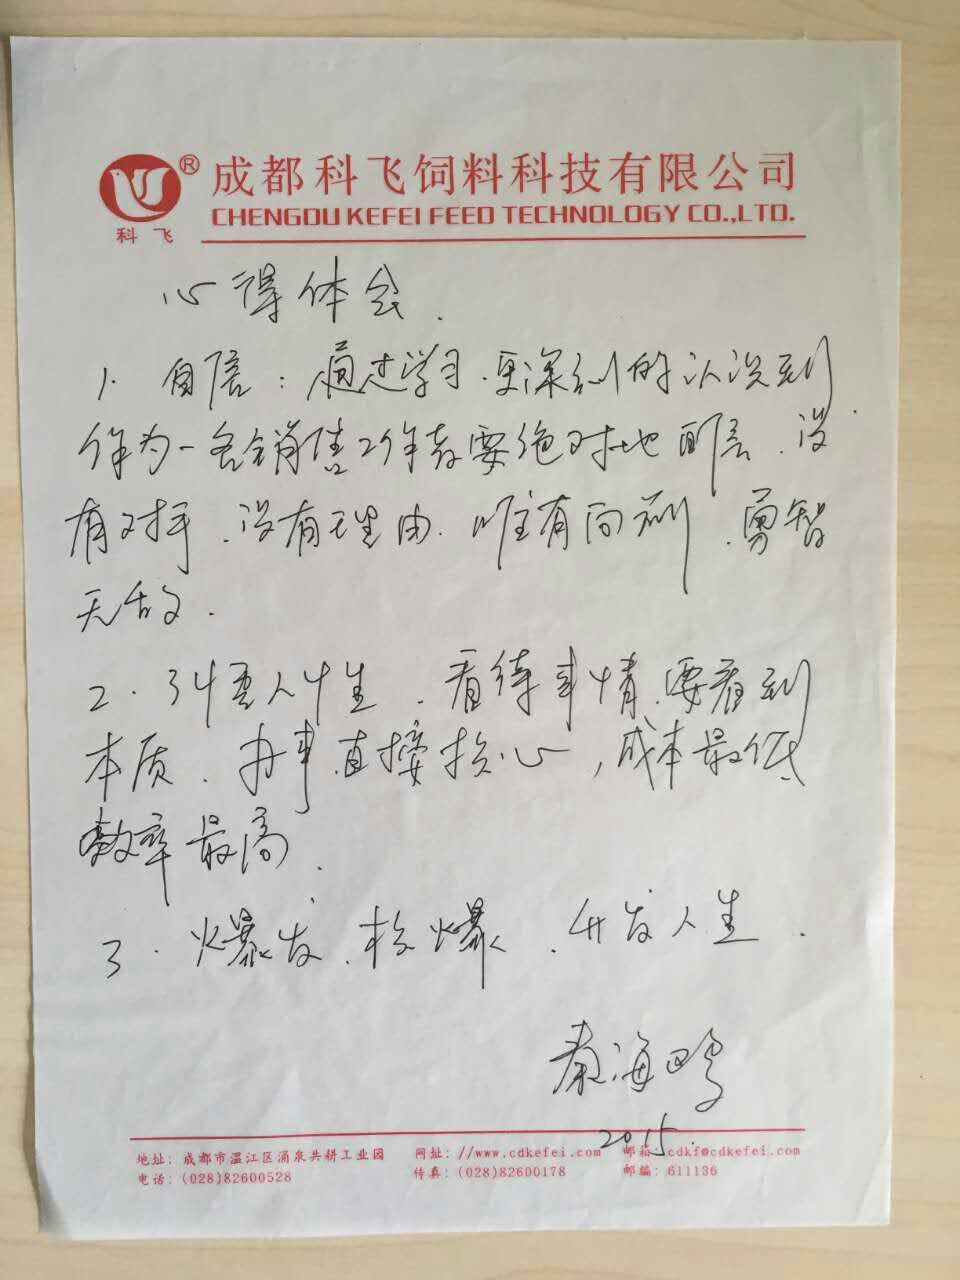 ® 成都科飞饲料科技有限公司
CHENGDU KEFEI FEED TECHNOLOGY CO.,LTD.
科飞
心得体会.
1. 自信：通过学习.更深刻的认识到
作为一名销售工作者要绝对地自信.没
有对手.没有理由.唯有向前.勇智
无敌.
2.引悟人性.看待事情.要看到
本质.办事直接核心,成本最低
效率最高.
3.爆发.核爆.开发人生.
秦海
2015.
地址: 成都市温江区涌泉共耕工业园 网址: //www.cdkefei.com 邮箱: cdkf@cdkefei.com
电话: (028)82600528 传真: (028)82600178 邮编: 611136